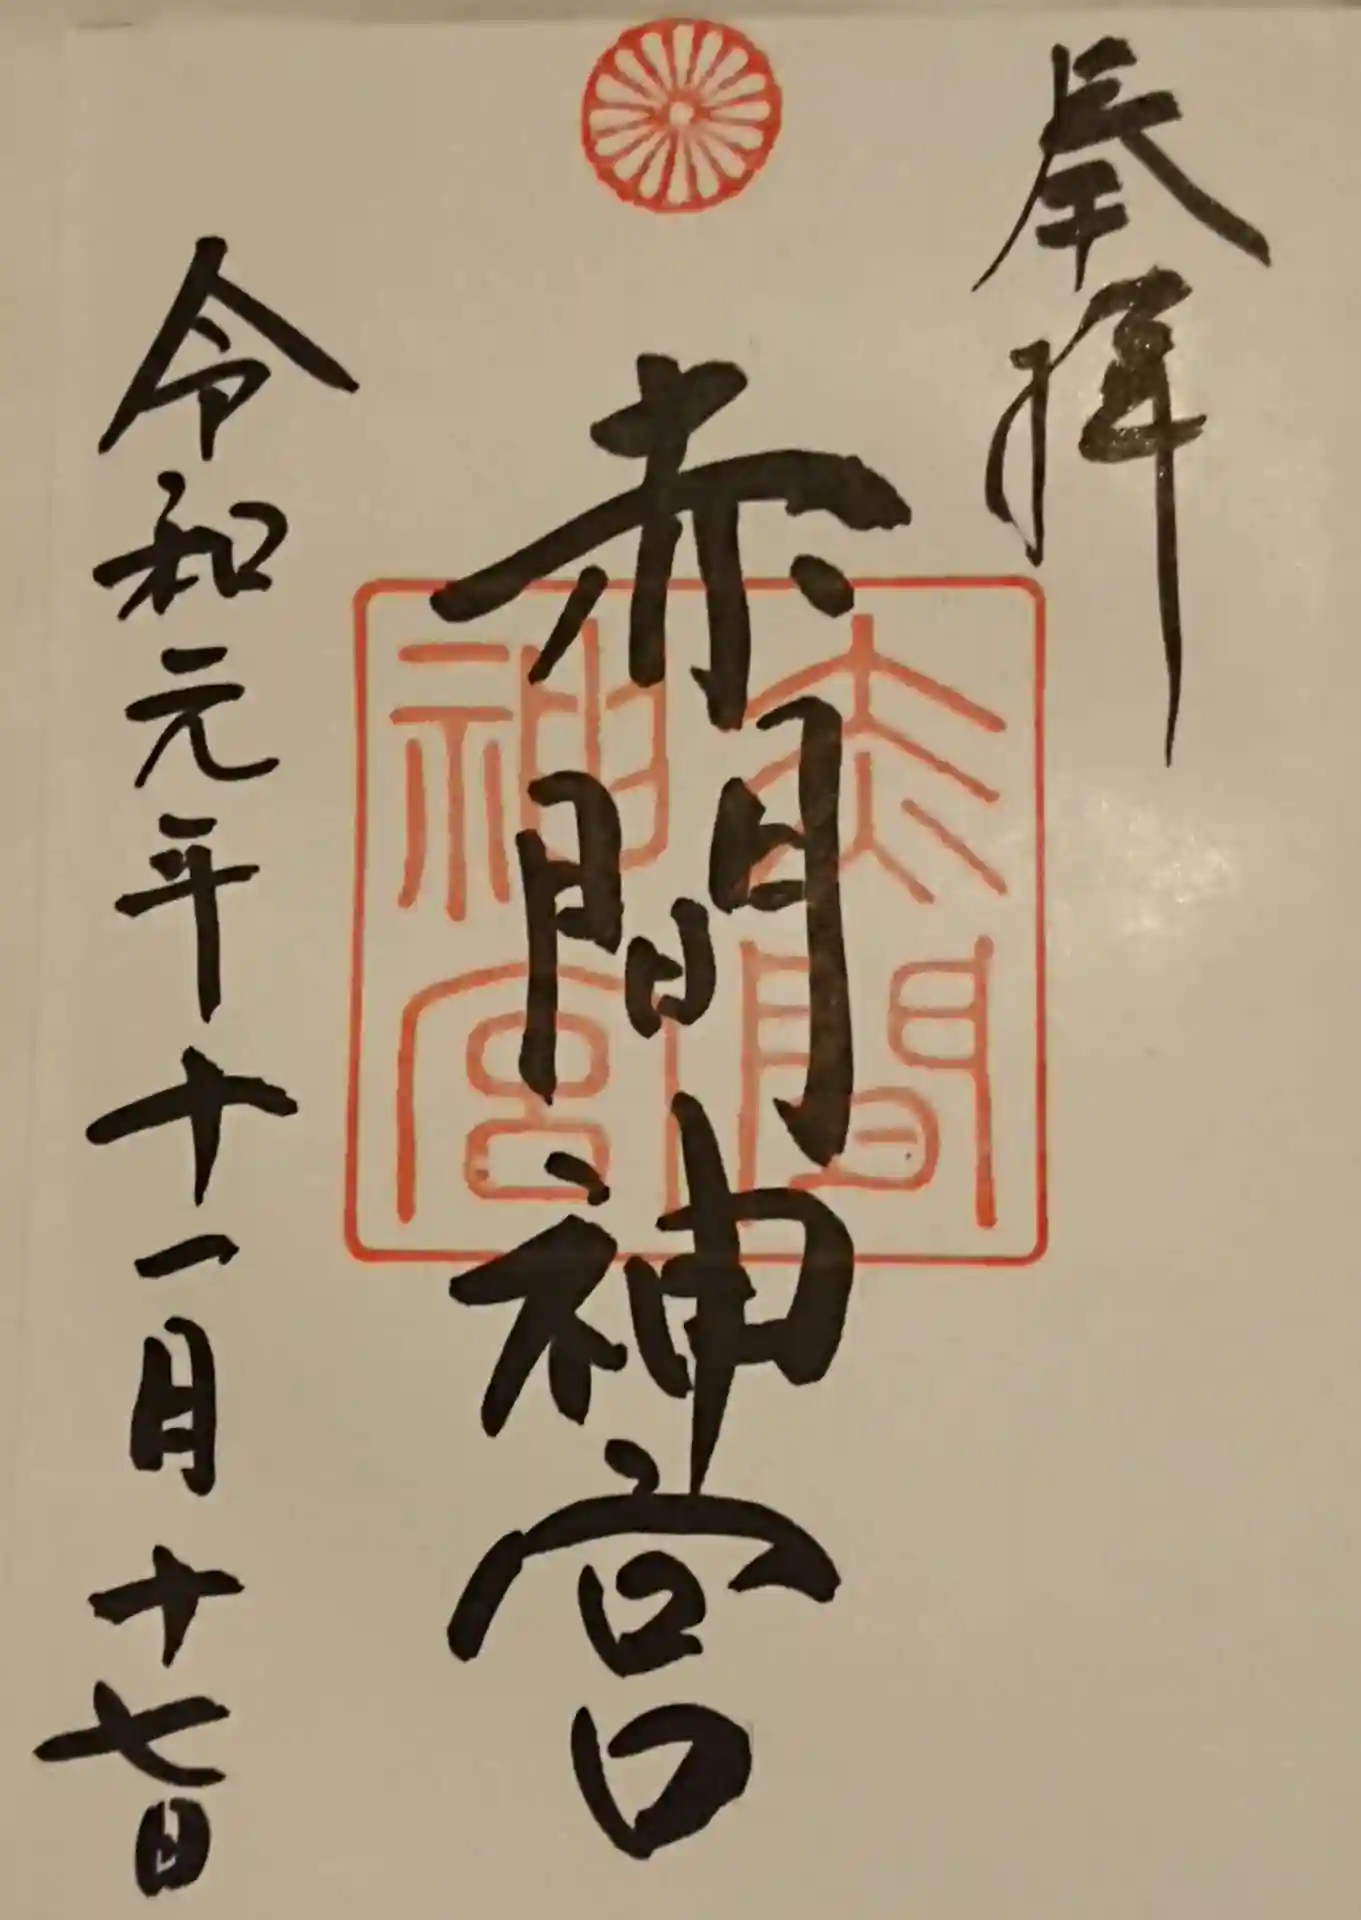 奉拝
赤間神宮
赤間
神宮
令和元年十一月十七日